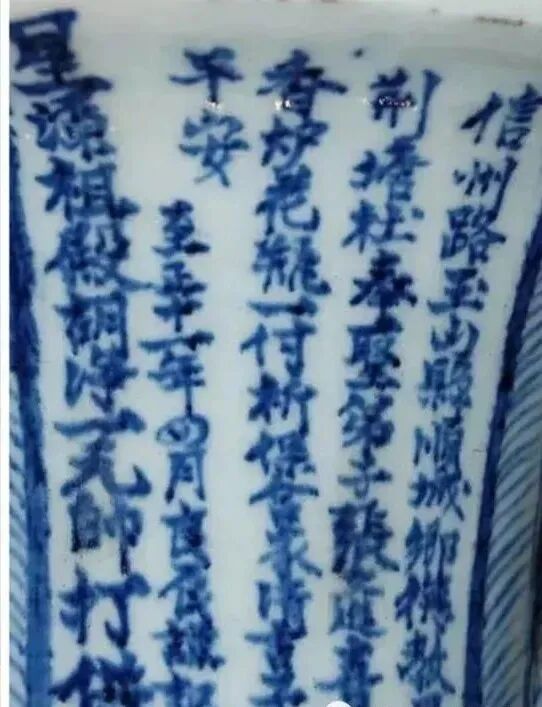 信州路玉山縣順城鄉德教
荊塘社奉聖弟子張文進
香炉花瓶一付祈保合家清吉子
平安
至正十一年四月吉辰謹記
星源祖殿胡淨一元帥打供